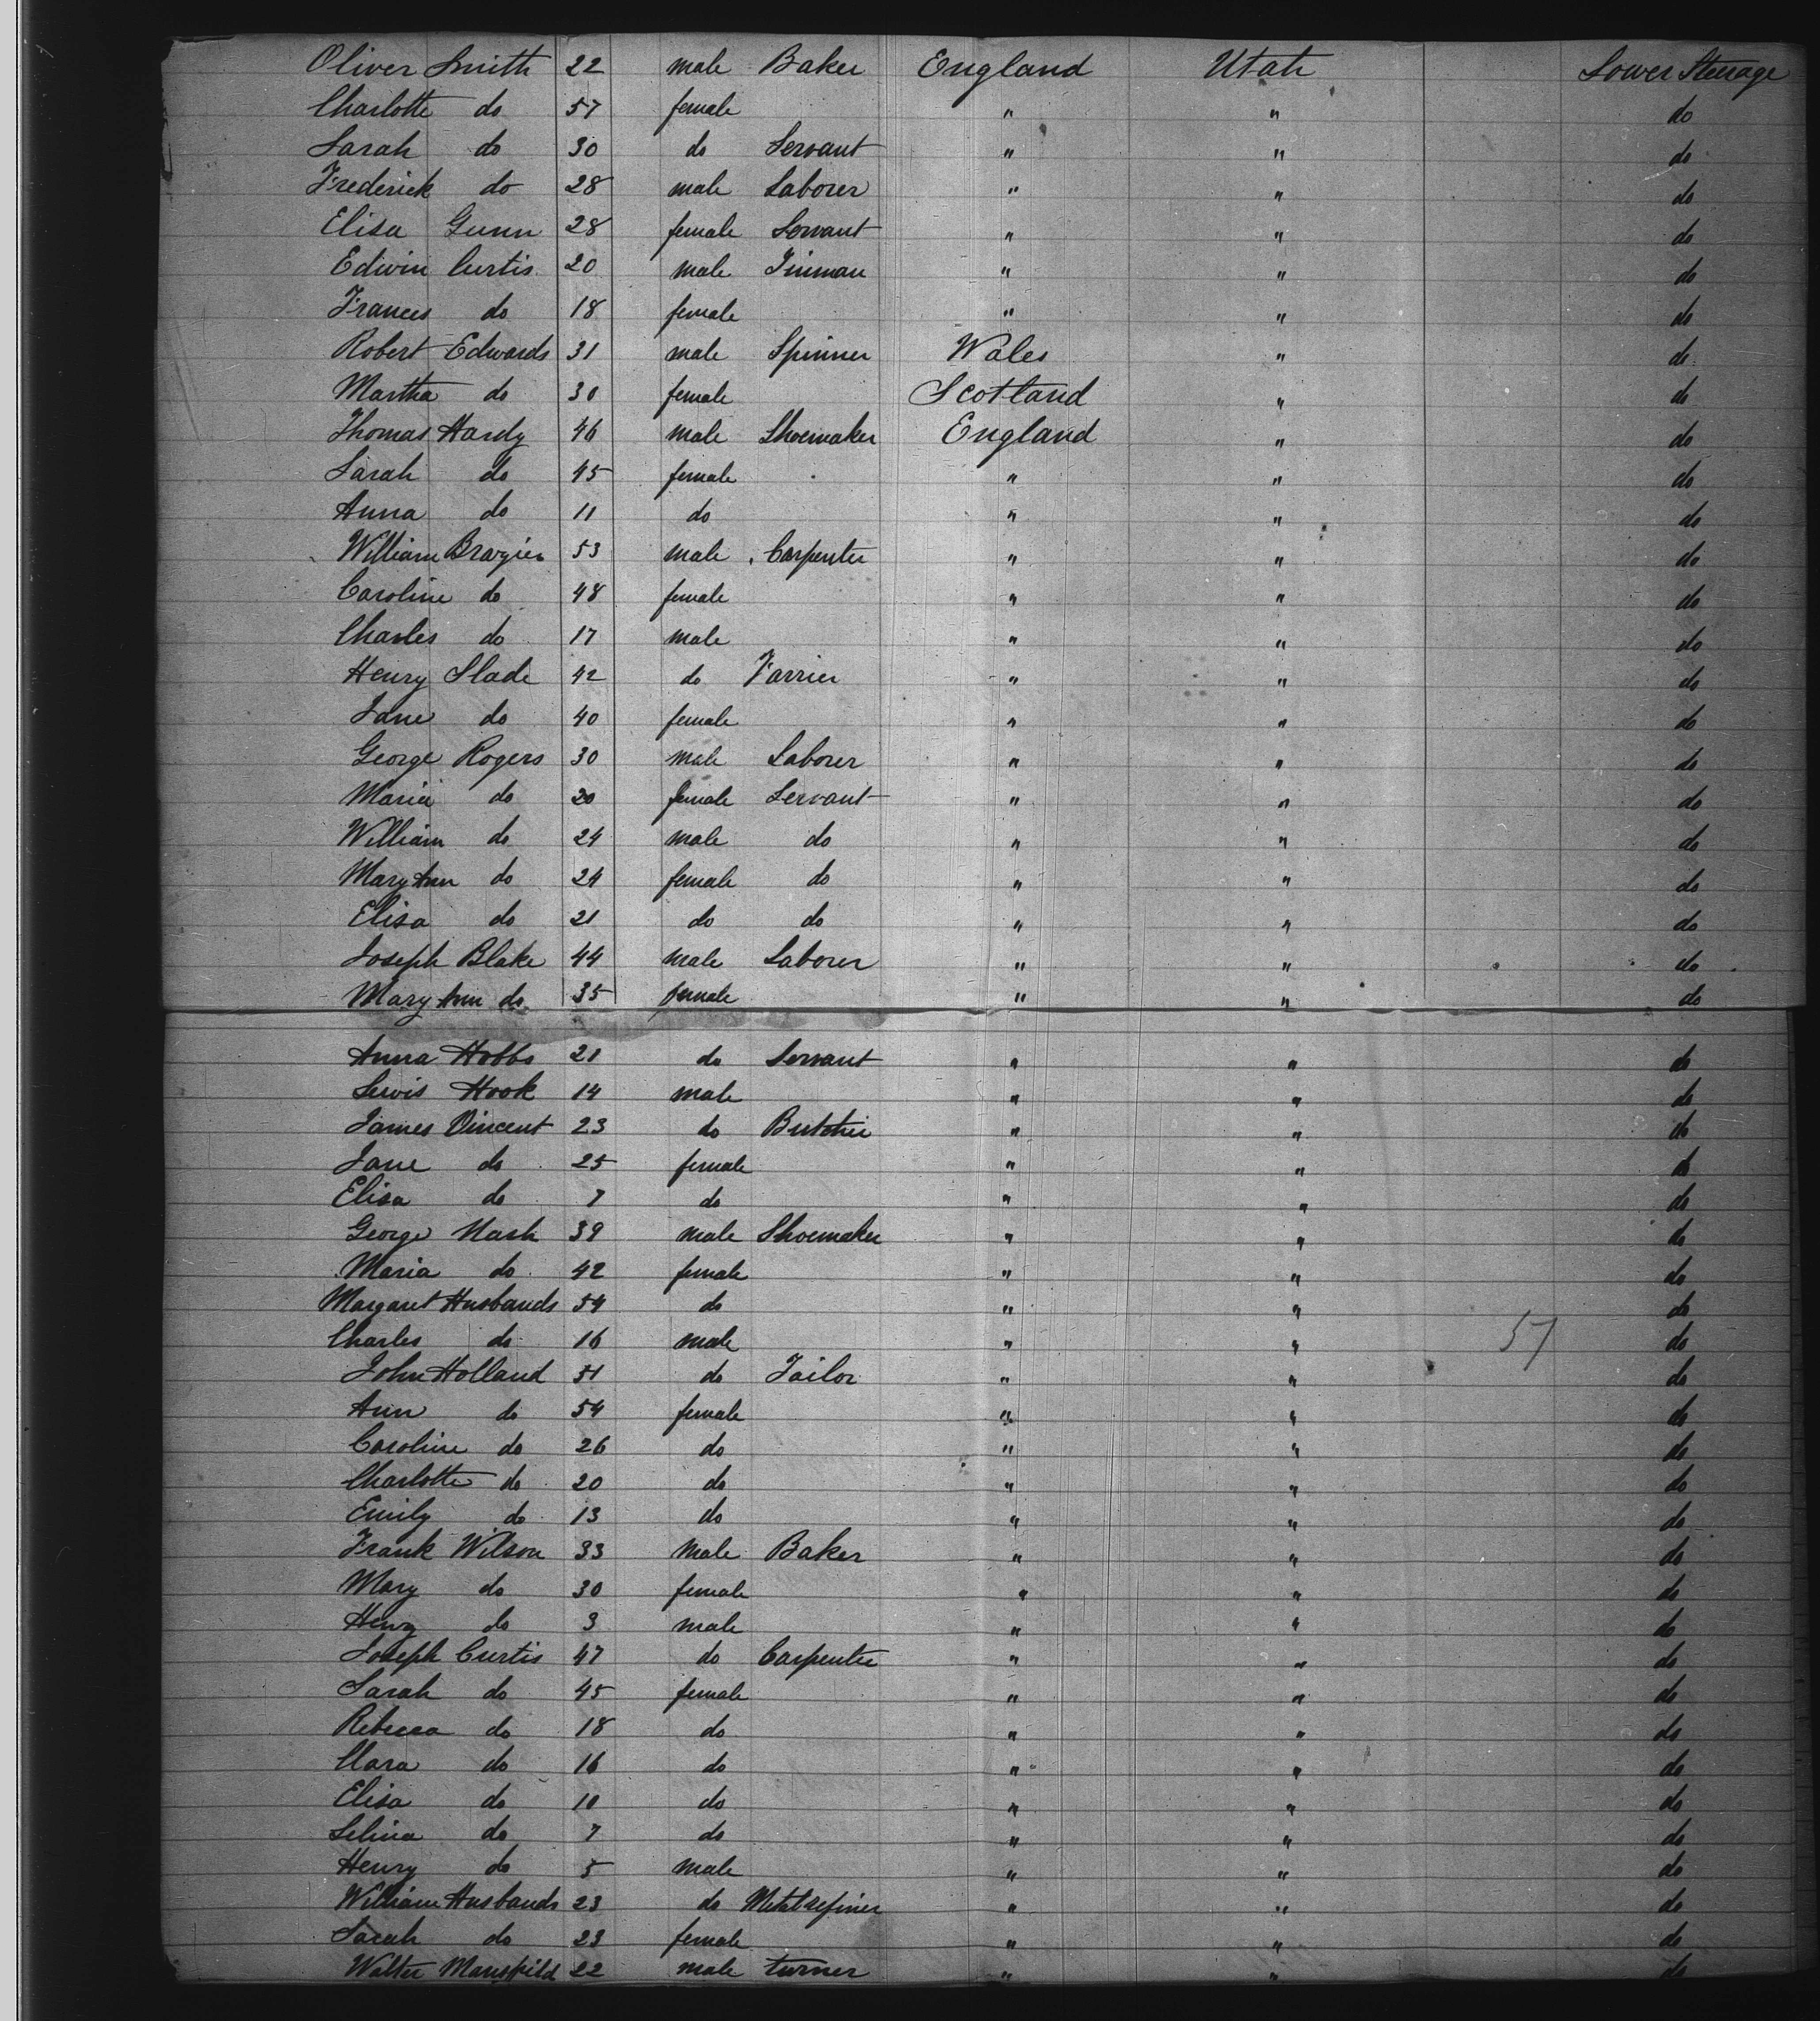 Oliver Smith 22 male Baker England Utah Lower Steerage
Charlotte do 57 female " " do
Sarah do 30 do Servant " " do
Frederick do 28 male Laborer " " do
Elisa Gunn 28 female Servant " " do
Edwin Curtis 20 male Tinman " " do
Frances do 18 female " " do
Robert Edwards 31 male Spinner Wales " do
Martha do 30 female Scotland " do
Thomas Hardy 46 male Shoemaker England " do
Sarah do 45 female " " do
Anna do 11 do " " do
William Brazier 53 male Carpenter " " do
Caroline do 48 female " " do
Charles do 17 male " " do
Henry Slade 42 do Farrier " " do
Jane do 40 female " " do
George Rogers 30 male Laborer " " do
Maria do 20 female Servant " " do
William do 24 male do " " do
Mary Ann do 24 female do " " do
Elisa do 21 do do " " do
Joseph Blake 44 male Laborer " " do
Mary Ann do 35 female " " do
Anna Hobbs 21 do Servant " " do
Lewis Hook 14 male " " do
James Vincent 23 do Butcher " " do
Jane do 25 female " " do
Elisa do 7 do " " do
George Nash 39 male Shoemaker " " do
Maria do 42 female " " do
Margaret Husbands 54 do " " do
Charles do 16 male " " 57 do
John Holland 51 do Tailor " " do
Ann do 54 female " " do
Caroline do 26 do " " do
Charlotte do 20 do " " do
Emily do 13 do " " do
Frank Wilson 33 Male Baker " " do
Mary do 30 female " " do
Henry do 3 male " " do
Joseph Curtis 47 do Carpenter " " do
Sarah do 45 female " " do
Rebecca do 18 do " " do
Clara do 16 do " " do
Elisa do 10 do " " do
Selina do 7 do " " do
Henry do 5 male " " do
William Husbands 23 do Metal refiner " " do
Sarah do 23 female " " do
Walter Mansfield 22 male turner " " do